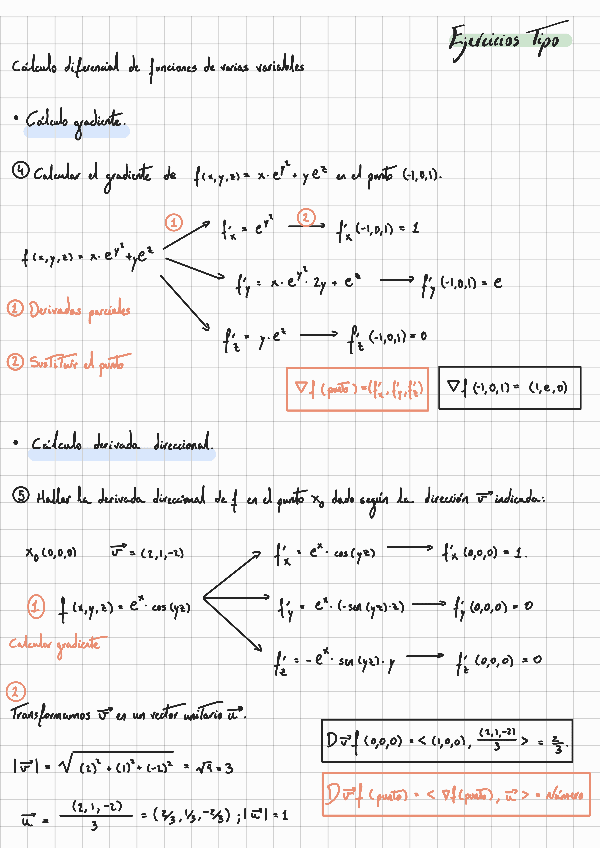 Ejercicios Tipo
Cálculo diferencial de funciones de varias variables
• Cálculo gradiente.
④ Calcular el gradiente de f(x,y,z) = x·e^y² + ye^z en el punto (-1,0,1).
① f'x = e^y² ② f'x (-1,0,1) = 1
f(x,y,z) = x·e^y² + ye^z
f'y = x·e^y²·2y + e^z f'y (-1,0,1) = e
① Derivadas parciales
f'z = y·e^z f'z (-1,0,1) = 0
② Sustituir el punto
∇f (punto) = (f'x, f'y, f'z) ∇f (-1,0,1) = (1,e,0)
• Cálculo derivada direccional.
⑤ Hallar la derivada direccional de f en el punto x₀ dado según la dirección v⃗ indicada:
x₀ (0,0,0) v⃗ = (2,1,-2) f'x = e^x·cos(yz) f'x (0,0,0) = 1.
① f(x,y,z) = e^x·cos(yz) f'y = e^x·(-sen(yz)·z) f'y (0,0,0) = 0
Calcular gradiente
f'z = -e^x·sen(yz)·y f'z (0,0,0) = 0
②
Transformamos v⃗ en un vector unitario u⃗.
Dv⃗f (0,0,0) = < (1,0,0), (2,1,-2)/3 > = 2/3.
|v⃗| = √(2)² + (1)² + (-2)² = √9 = 3
Dv⃗f (punto) = < ∇f(punto), u⃗ > = Número
u⃗ = (2,1,-2)/3 = (2/3, 1/3, -2/3) ; |u⃗| = 1